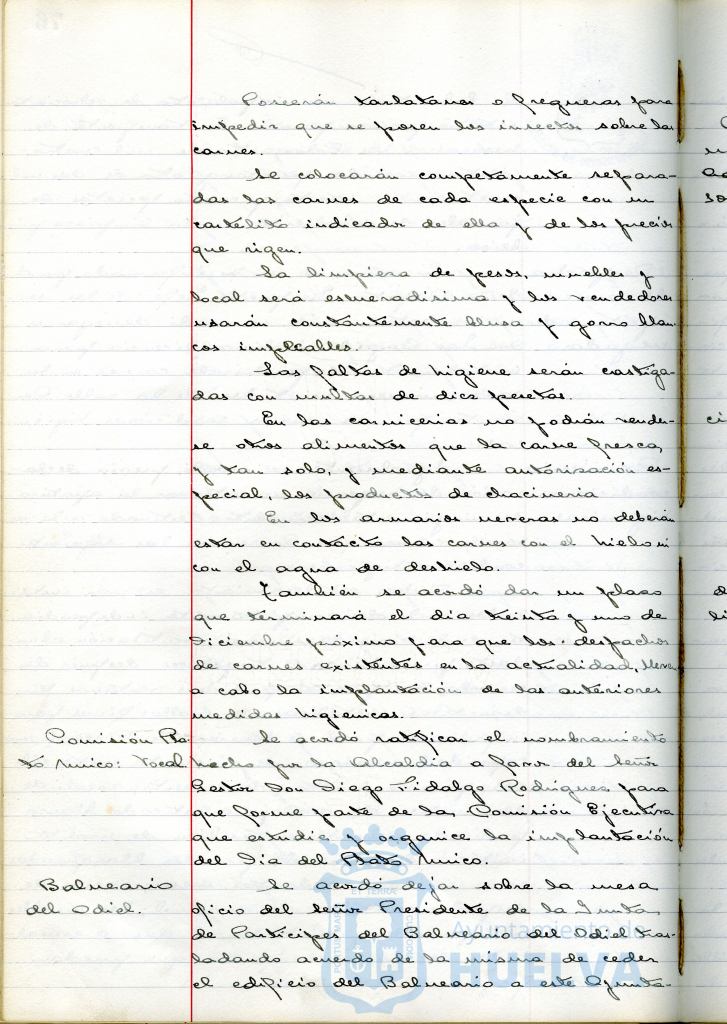 Poseerán tarlatanas o fregueras para
impedir que se posen los insectos sobre las
carnes.
Se colocarán competamente separa-
das las carnes de cada especie con un
cartelito indicador de ella y de los precios
que rigen.
La limpieza de pesos, muebles y
local será esmeradísima y los vendedores
usarán constantemente blusa y gorro blan-
cos impecables.
Las faltas de higiene serán castiga-
das con multas de diez pesetas.
En las carnicerias no podrán vender-
se otros alimentos que la carne fresca,
y tan solo, y mediante autorización es-
pecial, los productos de chacineria
En los armarios neveras no deberán
estar en contacto las carnes con el hielo ni
con el agua de deshielo.
También se acordó dar un plazo
que terminará el día treinta y uno de
Diciembre próximo para que los despachos
de carnes existentes en la actualidad, lleven
a cabo la implantación de las anteriores
medidas higienicas.
Comisión Pla-
to Unico: Vocal
Se acordó ratificar el nombramiento
hecho por la Alcaldia a favor del Señor
Gestor Don Diego Fidalgo Rodríguez para
que forme parte de la Comisión Ejecutiva
que estudie y organice la implantación
del Dia del Plato Unico.
Balneario
del Odiel.
Se acordó dejar sobre la mesa
oficio del Señor Presidente de la Junta
de Participes del Balneario del Odiel tras-
ladando acuerdo de la misma de ceder
el edificio del Balneario a este Ayunta-
Ayuntamiento de
HUELVA